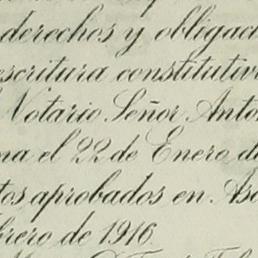 derechos y obligac
scritura constitutiv
Notario Señor Anto
na el 22 de Enero d
tos aprobados en As
brero de 1916